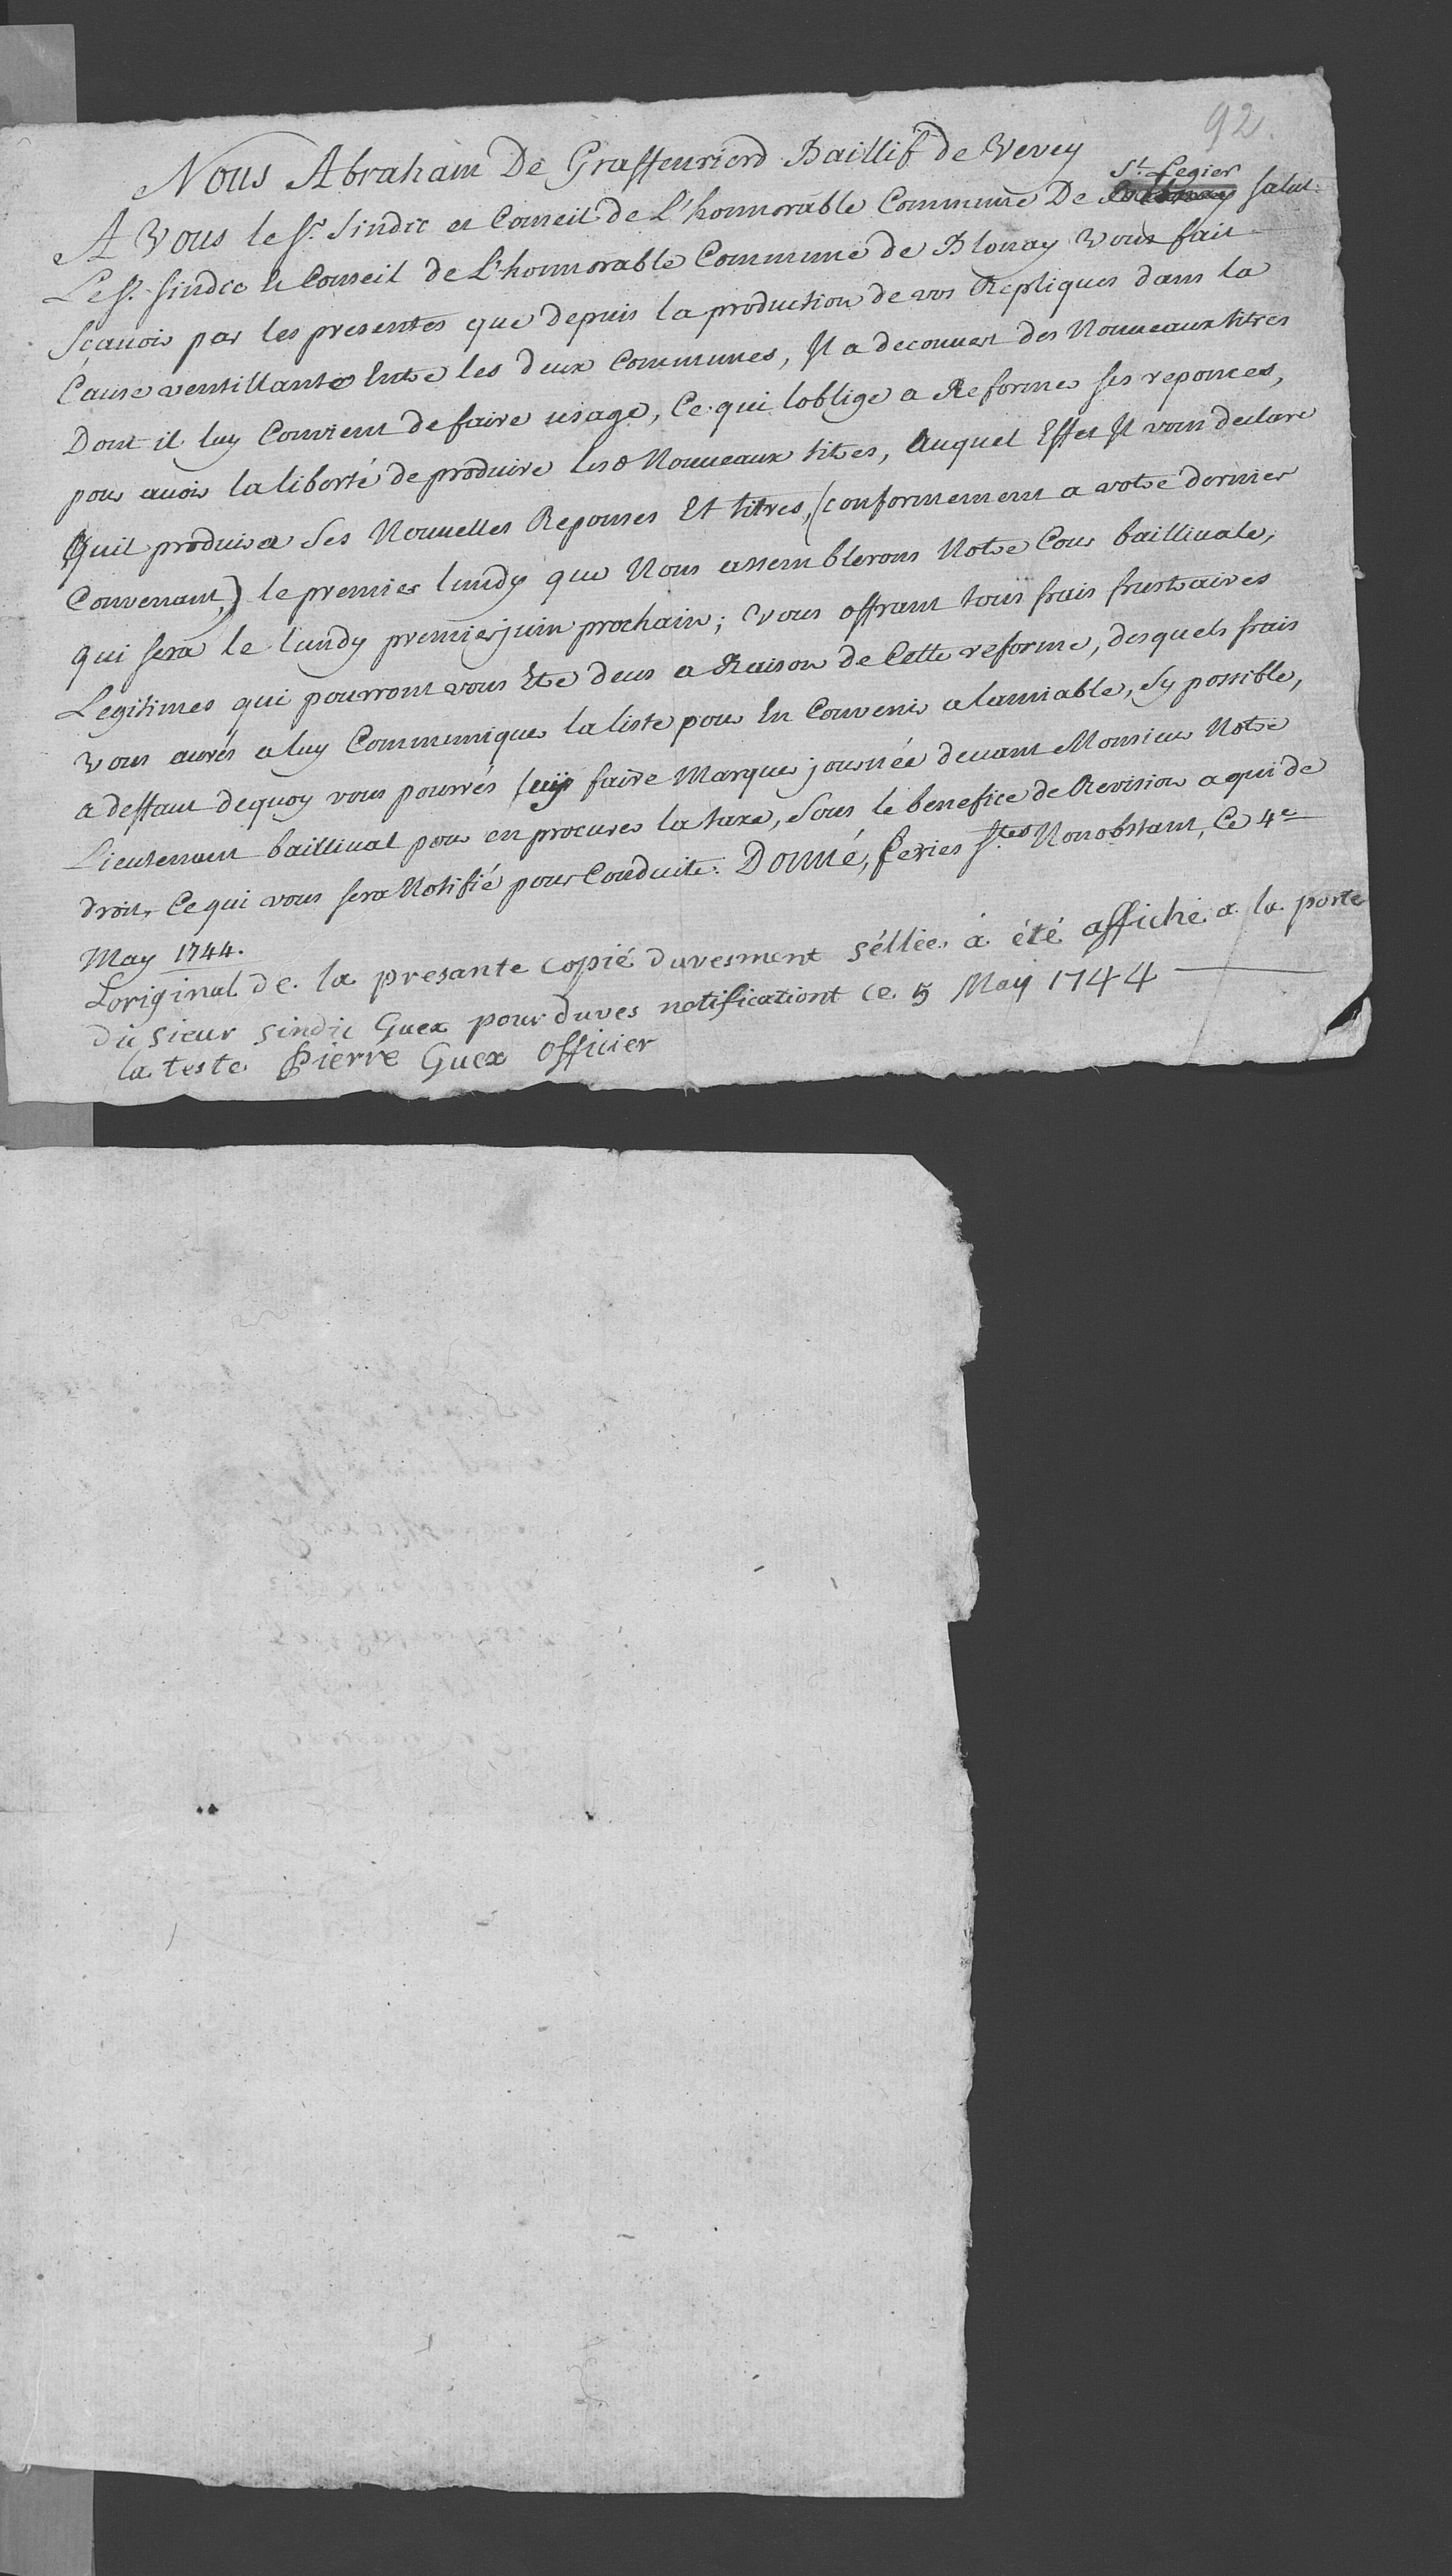 92.
Nous Abraham De Graffenrierd Baillif de Vevey
A Vous le Sr. Sindic et Conseil de L'honnorable Commune De St. Legier salut.
Le Sr. Sindic et Conseil de L'honnorable Commune de Blonay Vous fait
sçavoir par les presentes que depuis la production de vos Repliques dans la
Cause ventillante Entre les deux Communes, Il a decouvert des Nouveaux titres
Dont il luy Convient de faire usage, Ce qui loblige a Reformer ses reponces,
pour avoir la liberté de produire les Nouveaux titres, Auquel Effet Il vous declare
Quil produira Ses Nouvelles Reponses Et titres, (conformement a votre dernier
Convenant,) le premier lundy que Nous assemblerons Notre Cour baillivale,
qui sera le lundy premier juin prochain; Vous offrant tous frais frustraires
Legitimes qui pourront vous Etre deus a Raison de Cette reforme, desquels frais
vous aurés a luy Communiquer la liste pour En Convenir a lamiable, Sy possible,
a deffaut dequoy vous pourrés luy faire Marquer journée devant Monsieur Notre
Lieutenant baillival pour en procurer la taxe, Sous le benefice de Revision a qui de
droit, Ce qui vous sera Notifié pour Conduite. Donné, feries Stes Nonobstant, Ce 4e
May 1744.
Loriginal de la presante copié duvesment séllée à été affiché a la porte
du sieur sindic Guex pour duves notificationt ce 5 May 1744
la teste Pierre Guex officier